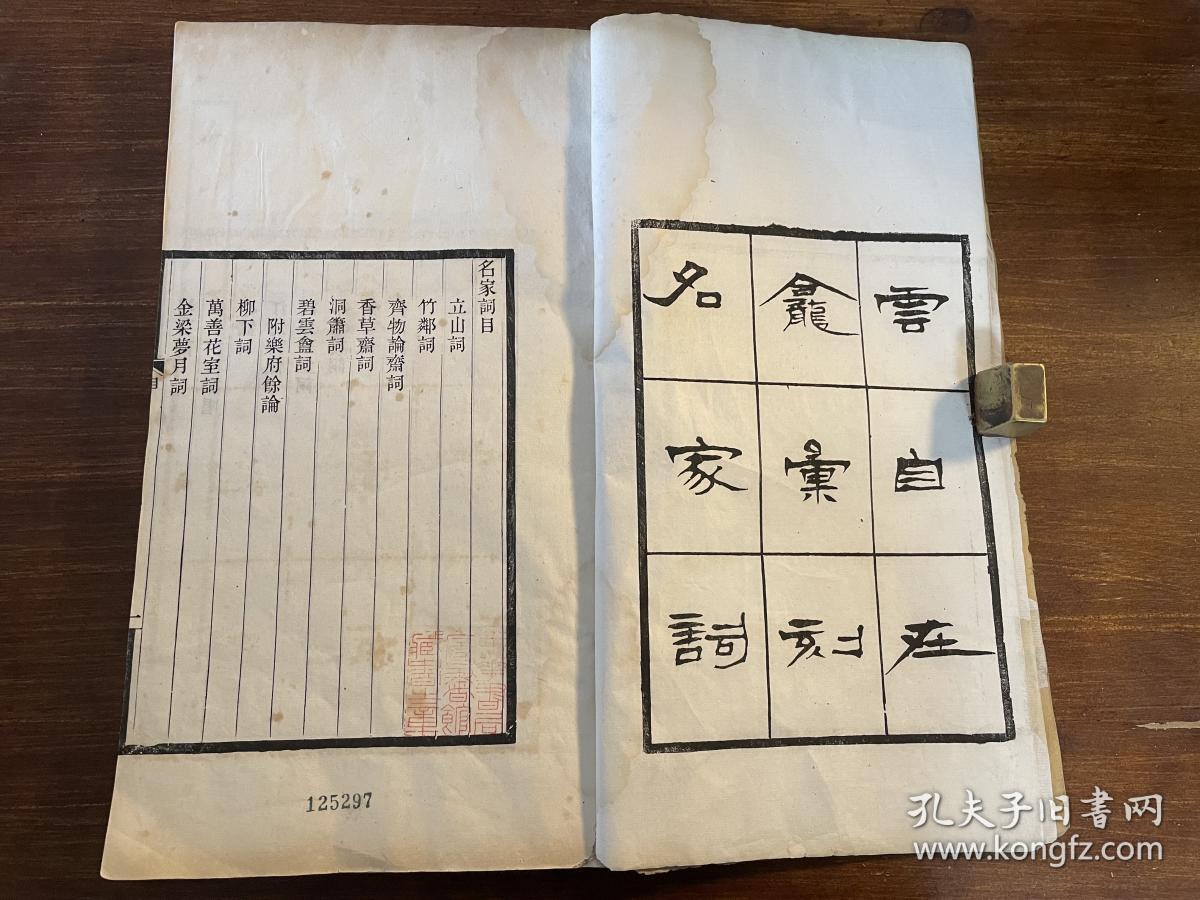 雲自在
龕彙刻
名家詞
名家詞目
立山詞
竹鄰詞
齊物論齋詞
香草齋詞
洞簫詞
碧雲盦詞
附樂府餘論
柳下詞
萬善花室詞
金梁夢月詞
目
一
中華書局
圖書館
藏書
125297
孔夫子旧书网
www.kongfz.com